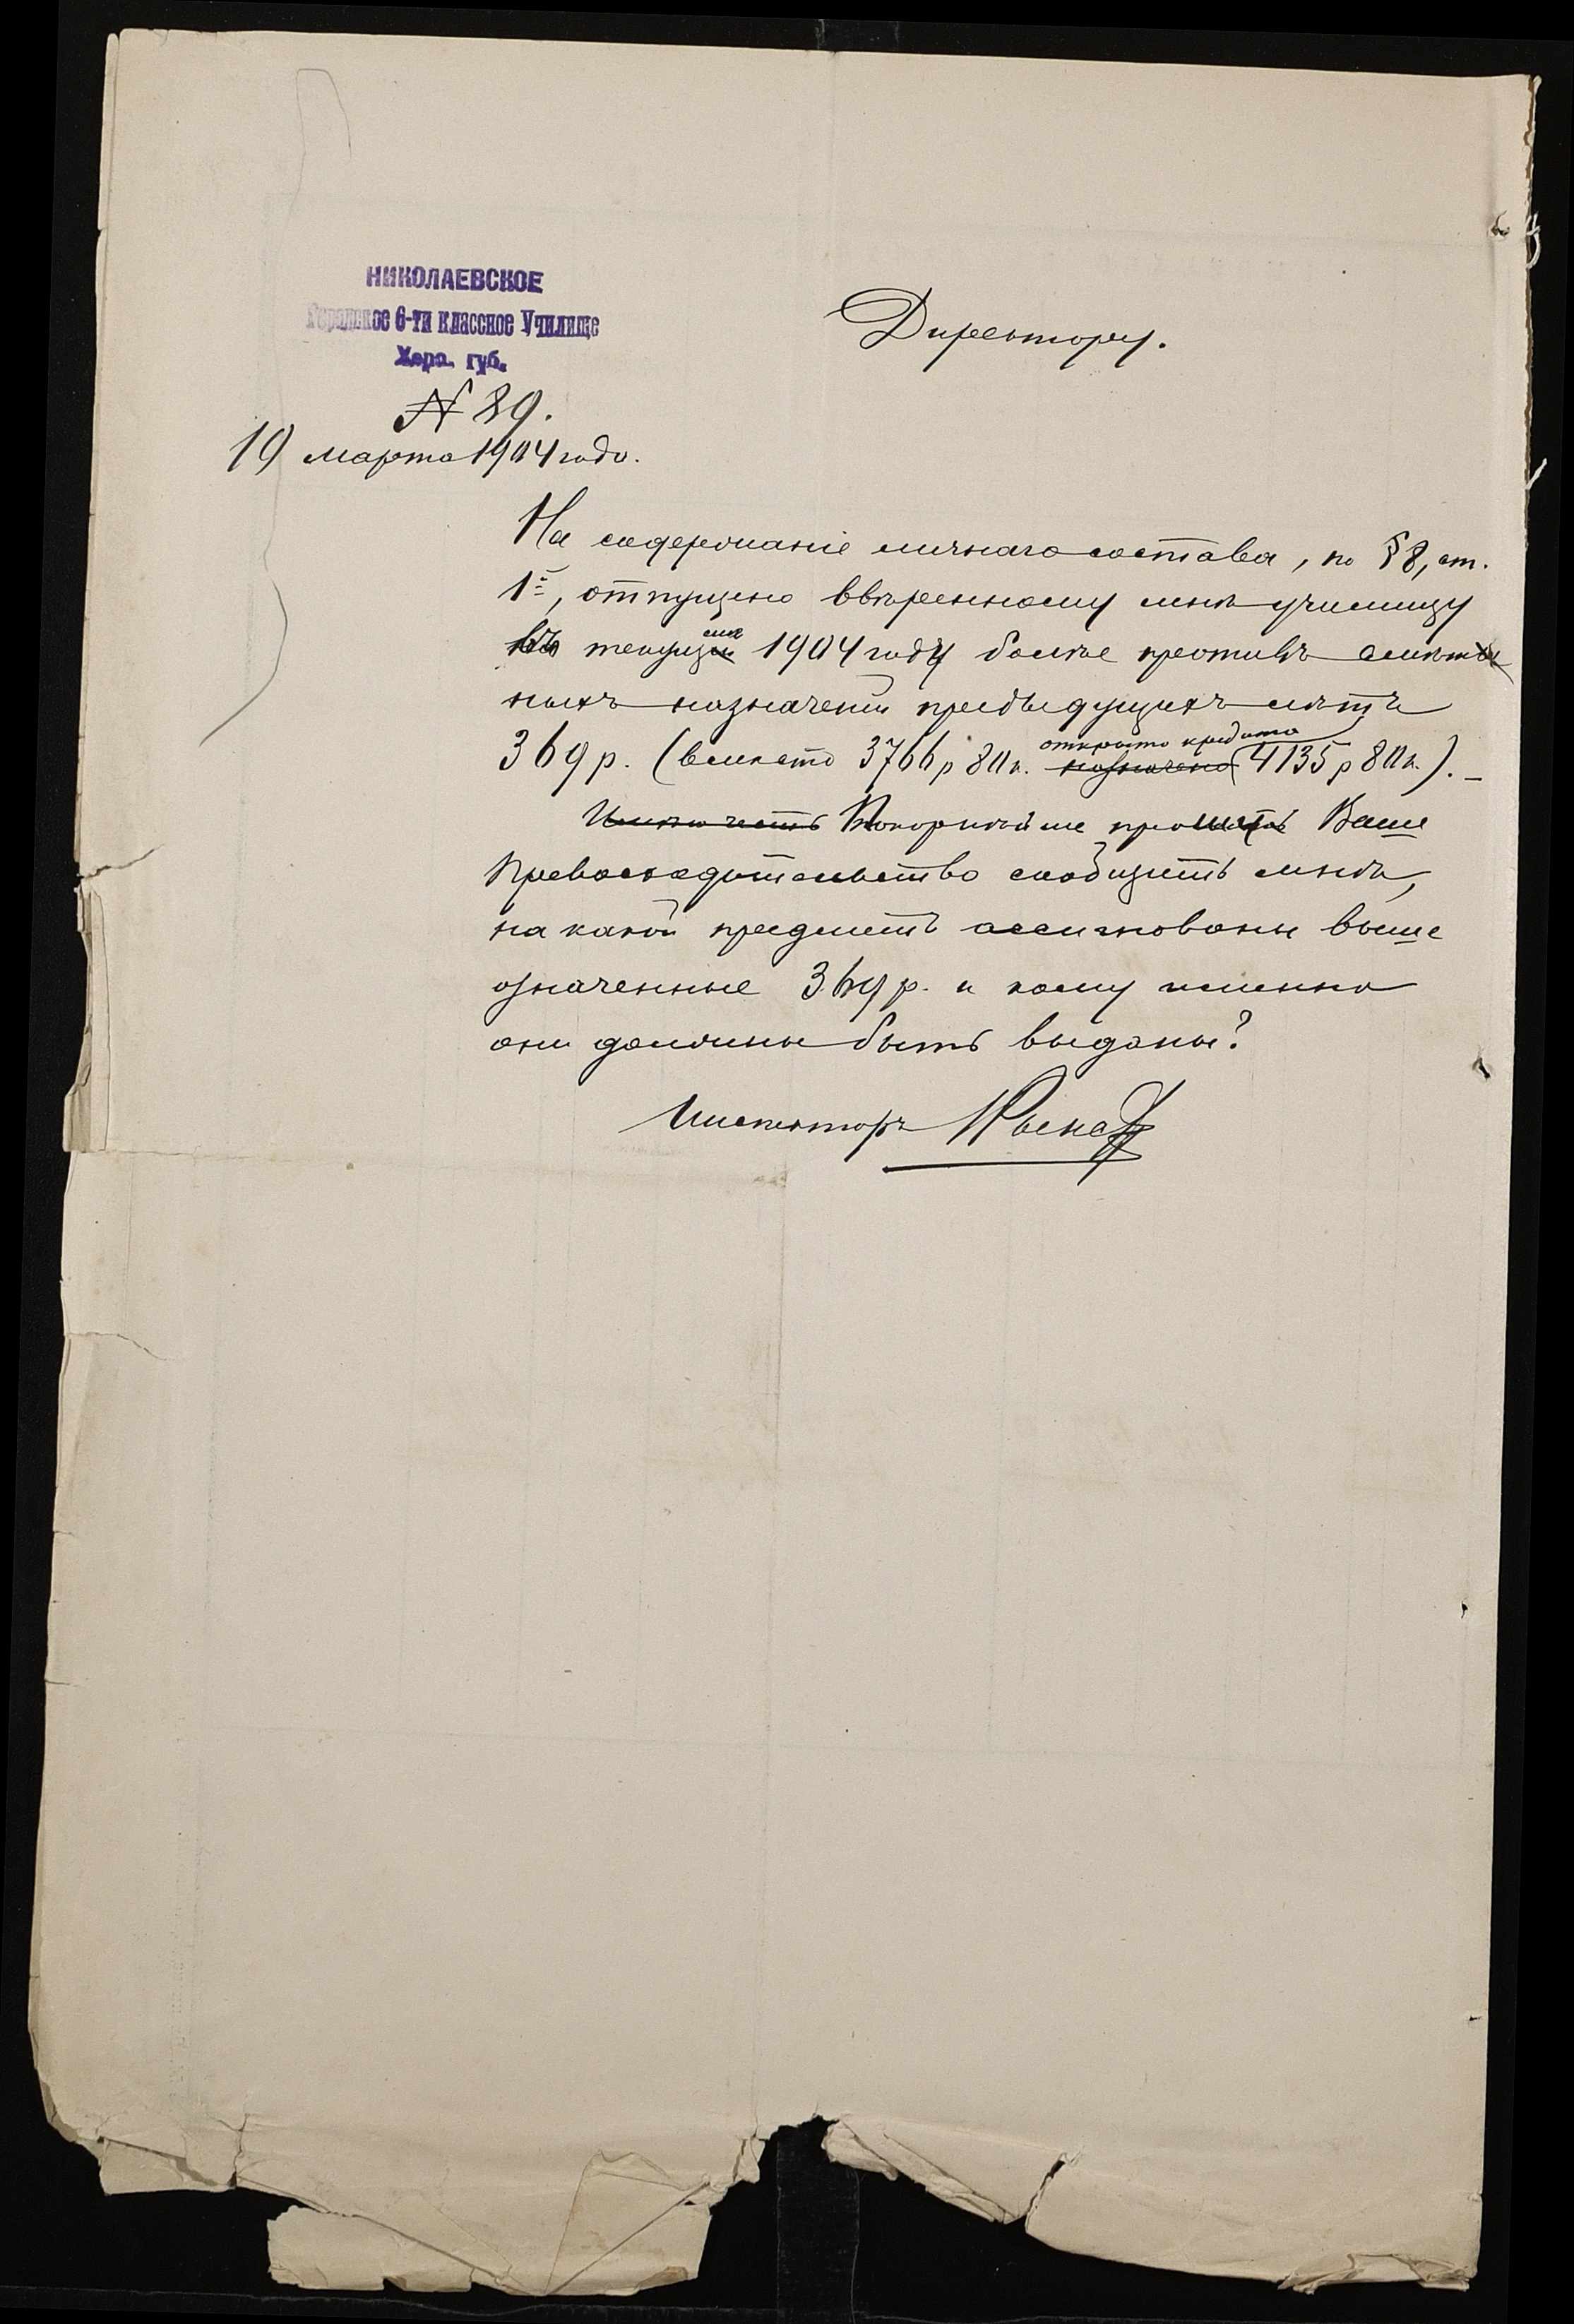 НИКОЛАЕВСКОЕ
Городское 6-ти классное Училище
Херс. губ.
Директору.
№ 89.
19 марта 1904 года.
На содержаніе личнаго состава, по § 8, ст.
1й, отпущено ввѣренному мнѣ училищу
въ текущемъ 1904 году болѣе противъ смѣт
ныхъ назначеній предыдущихъ лѣтъ
369 р. (вмѣсто 3766 р 80 к. назначено открыто кредита 4135 р 80 к.). –
Имѣю честь Покорнѣйше прошу Ваше
Превосходительство сообщить мнѣ,
на какой предметъ ассигнованы выше
означенные 369 р. и кому именно
они должны быть выданы?
Инспекторъ